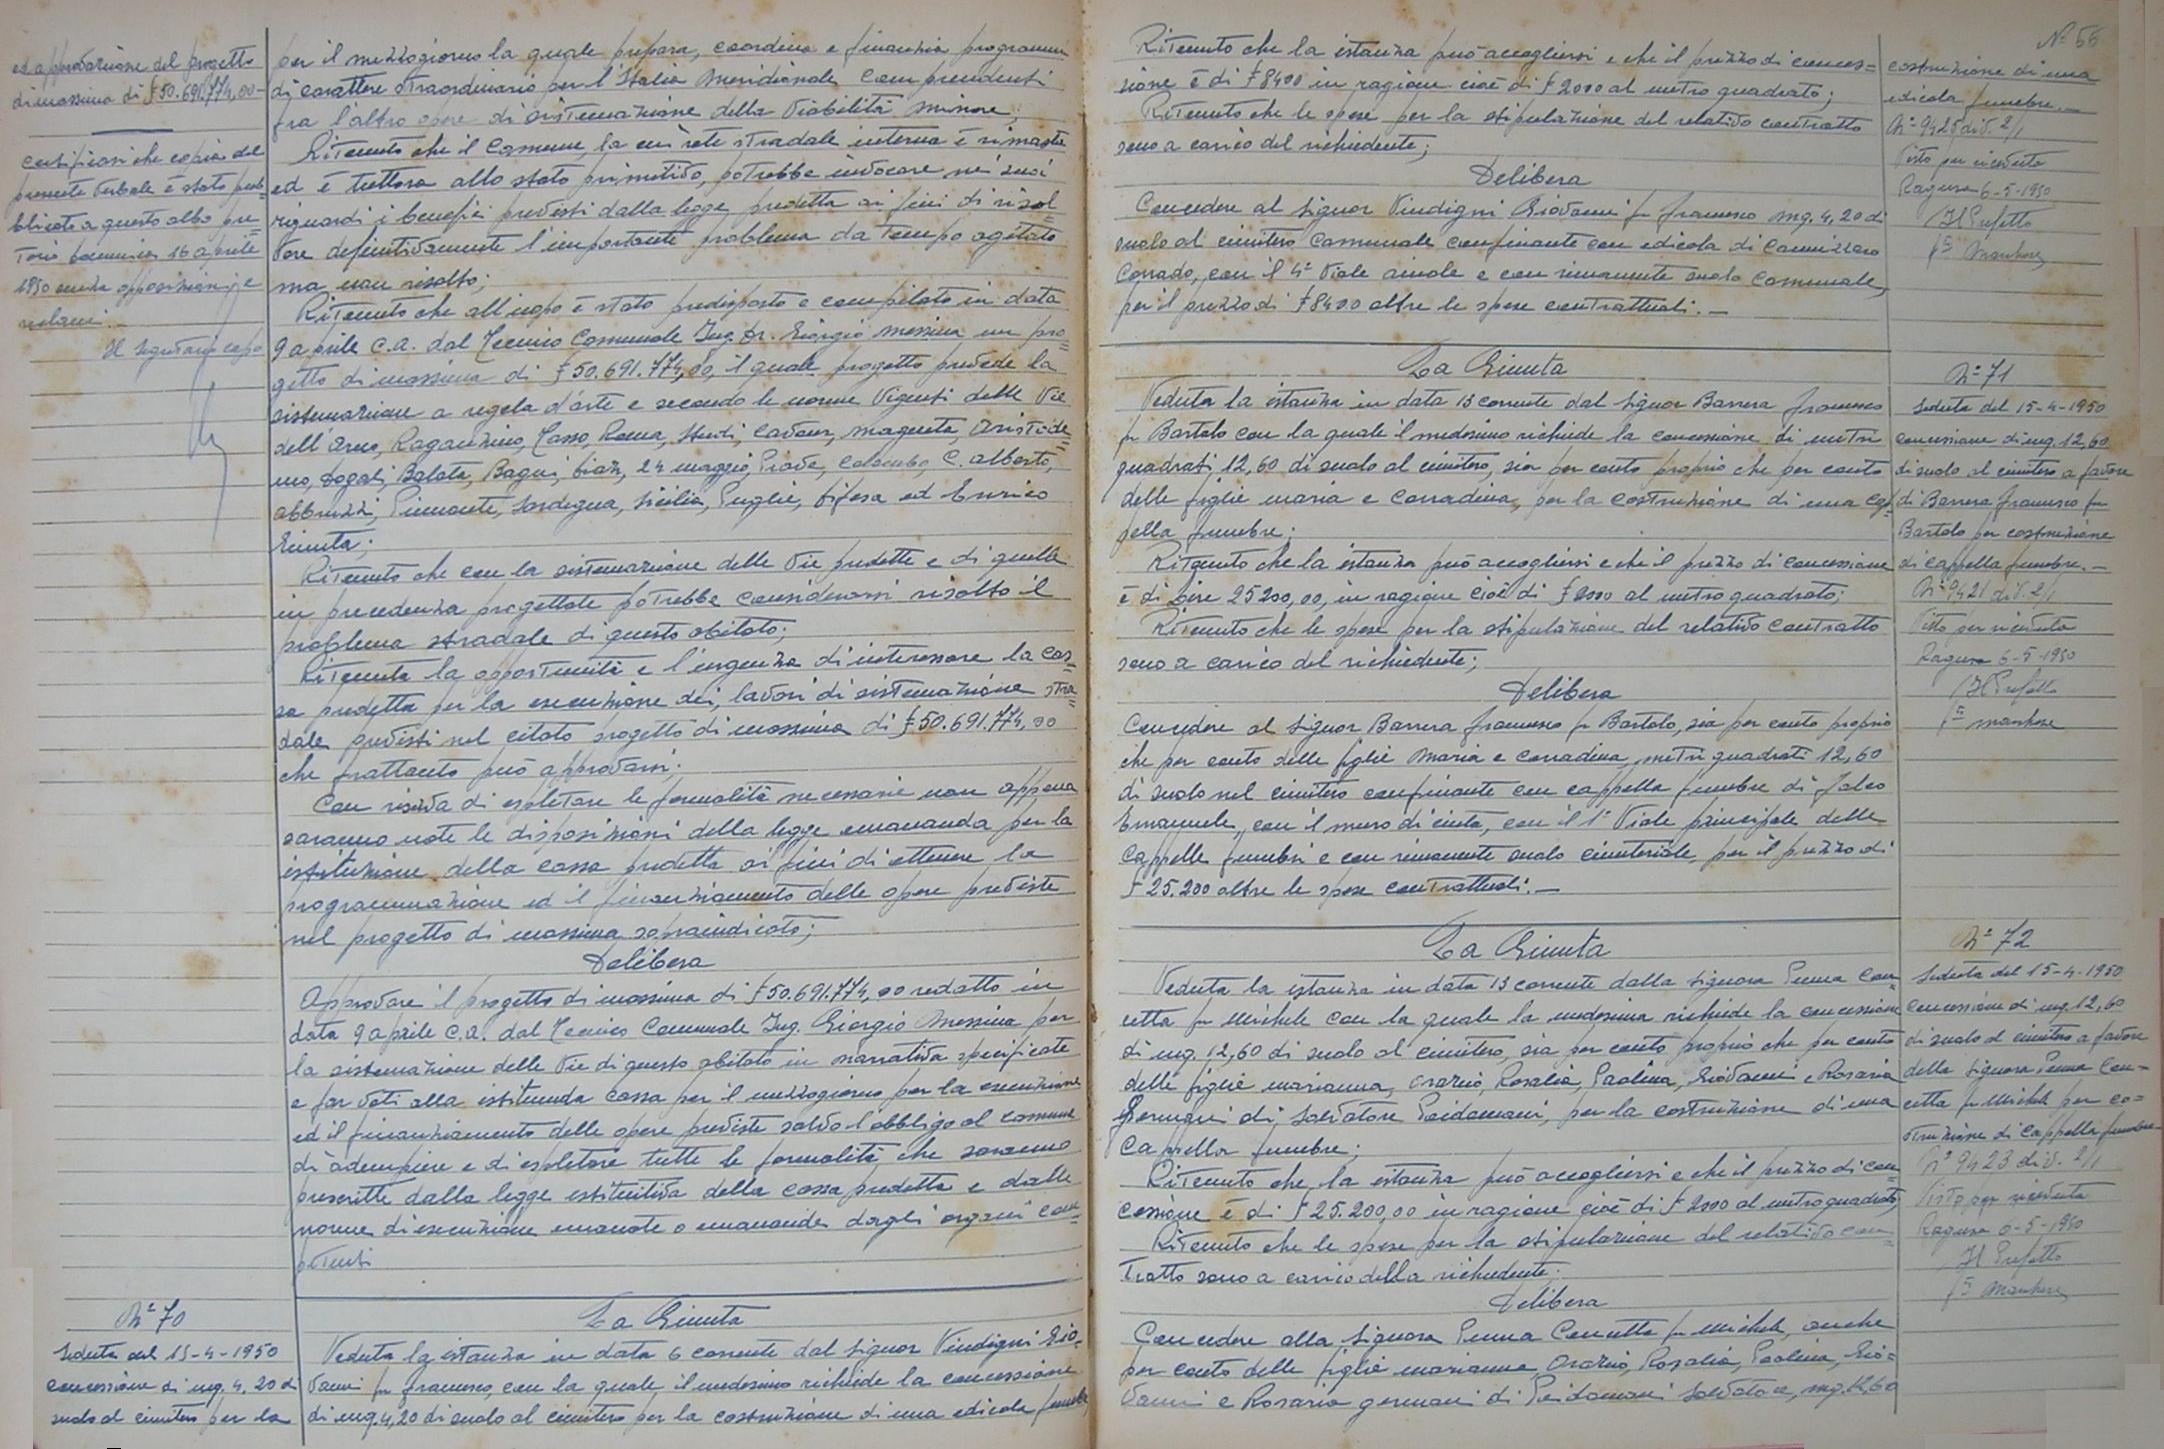 ed approvazione del progetto
di massima di £ 50.691.774,00-
certificasi che copia del
presente verbale è stata pub
blicata a questo albo pre=
torio domenica 16 aprile
1950 senza opposizioni e
reclami.-
Il Segretario capo
per il mezzogiorno la quale prepara, coordina e finanzia programmi
di carattere straordinario per l'Italia Meridionale comprendenti
fra l'altro opere di sistemazione della viabilità minore;
Ritenuto che il Comune, la cui rete stradale interna è rimasta
ed è tuttora allo stato primitivo, potrebbe invocare nei suoi
riguardi i benefici previsti dalla legge predetta ai fini di risol=
vere definitivamente l'importante problema da tempo agitato
ma non risolto;
Ritenuto che all'uopo è stato predisposto e compilato in data
9 aprile c.a. dal Tecnico Comunale Ing. Dr. Giorgio Messina un pro=
getto di massima di £ 50.691.774,00, il quale progetto prevede la
sistemazione a regola d'arte e secondo le norme vigenti delle vie
dell'Arco, Roma, Cavour, Magenta,
Dogali, Bixio, 24 maggio, Piave, Colombo, C. Alberto,
Abbruzzi, Piemonte, Sardegna, Sicilia, Puglie, Difesa ed Enrico
Giunta;
Ritenuto che con la sistemazione delle vie predette e di quelle
in precedenza progettate potrebbe considerarsi risolto il
problema stradale di questo abitato;
Ritenuta la opportunità e l'urgenza di interessare la cas=
sa predetta per la esecuzione dei lavori di sistemazione stra=
dale previsti nel citato progetto di massima di £ 50.691.774,00
che frattanto può approvarsi;
Con riserva di espletare le formalità necessarie non appena
saranno note le disposizioni della legge emananda per la
istituzione della cassa predetta ai fini di ottenere la
programmazione ed il finanziamento delle opere previste
nel progetto di massima sopraindicato;
Delibera
Approvare il progetto di massima di £ 50.691.774,00 redatto in
data 9 aprile c.a. dal Tecnico Comunale Ing. Giorgio Messina per
la sistemazione delle vie di questo abitato in narrativa specificate
e far voti alla istituenda cassa per il mezzogiorno per la esecuzione
ed il finanziamento delle opere previste salvo l'obbligo al comune
di adempiere e di espletare tutte le formalità che saranno
prescritte dalla legge istitutiva della cassa predetta e dalle
norme di esecuzione emanate o emanande dagli organi com=
petenti
N° 70
Seduta del 15-4-1950
concessione di mq. 4,20 di
suolo al cimitero per la
La Giunta
Veduta la istanza in data 6 corrente dal Signor Vindigni Gio=
vanni fu Francesco, con la quale il medesimo richiede la concessione
di mq. 4,20 di suolo al cimitero per la costruzione di una edicola funebre
N° 56
Ritenuto che la istanza può accogliersi e che il prezzo di conces=
sione è di £ 8400 in ragione cioè di £ 2000 al metro quadrato;
Ritenuto che le spese per la stipulazione del relativo contratto
sono a carico del richiedente;
Delibera
Concedere al Signor Vindigni Giovanni fu Francesco mq. 4,20 di
suolo al cimitero Comunale confinante con edicola di Cannizzaro
Corrado, con il 4° viale aiuole e con rimanente suolo comunale,
per il prezzo di £ 8400 oltre le spese contrattuali.-
costruzione di una
edicola funebre.-
N° 9425 div. 2/1
Visto per ricevuta
Ragusa 6-5-1950
Il Prefetto
La Giunta
Veduta la istanza in data 13 corrente dal Signor Barrera Francesco
fu Bartolo con la quale il medesimo richiede la concessione di metri
quadrati 12,60 di suolo al cimitero, sia per conto proprio che per conto
delle figlie Maria e Corradina, per la costruzione di una cap=
pella funebre;
Ritenuto che la istanza può accogliersi e che il prezzo di concessione
è di lire 25200,00, in ragione cioè di £ 2000 al metro quadrato;
Ritenuto che le spese per la stipulazione del relativo contratto
sono a carico del richiedente;
Delibera
Concedere al Signor Barrera Francesco fu Bartolo, sia per conto proprio
che per conto delle figlie Maria e Corradina, metri quadrati 12,60
di suolo nel cimitero confinante con cappella funebre di
Emanuele, con il muro di cinta, con il 1° Viale principale delle
Cappelle funebri e con rimanente suolo cimiteriale, per il prezzo di
£ 25.200 oltre le spese contrattuali.-
N° 71
Seduta del 15-4-1950
concessione di mq. 12,60
di suolo al cimitero a favore
di Barrera Francesco fu
Bartolo per costruzione
di cappella funebre.-
N° 9421 div. 2/1
Visto per ricevuta
Ragusa 6-5-1950
Il Prefetto
La Giunta
Veduta la istanza in data 13 corrente dalla Signora Penna Con=
cetta fu Michele con la quale la medesima richiede la concessione
di mq. 12,60 di suolo al cimitero, sia per conto proprio che per conto
delle figlie Marianna, Orazio, Rosalia, Paolina, Giovanni e Rosaria
germani di Salvatore, per la costruzione di una
Cappella funebre;
Ritenuto che la istanza può accogliersi e che il prezzo di con=
cessione è di £ 25.200,00 in ragione cioè di £ 2000 al metro quadrato;
Ritenuto che le spese per la stipulazione del relativo con=
tratto sono a carico della richiedente;
Delibera
Concedere alla Signora Penna Concetta fu Michele, anche
per conto delle figlie Marianna, Orazio, Rosalia, Paolina, Gio=
vanni e Rosario germani di Salvatore, mq. 12,60
N° 72
Seduta del 15-4-1950
concessione di mq. 12,60
di suolo al cimitero a favore
della Signora Penna Con=
cetta fu Michele per co=
struzione di cappella funebre
N° 9423 div. 2/1
Visto per ricevuta
Ragusa 6-5-1950
Il Prefetto